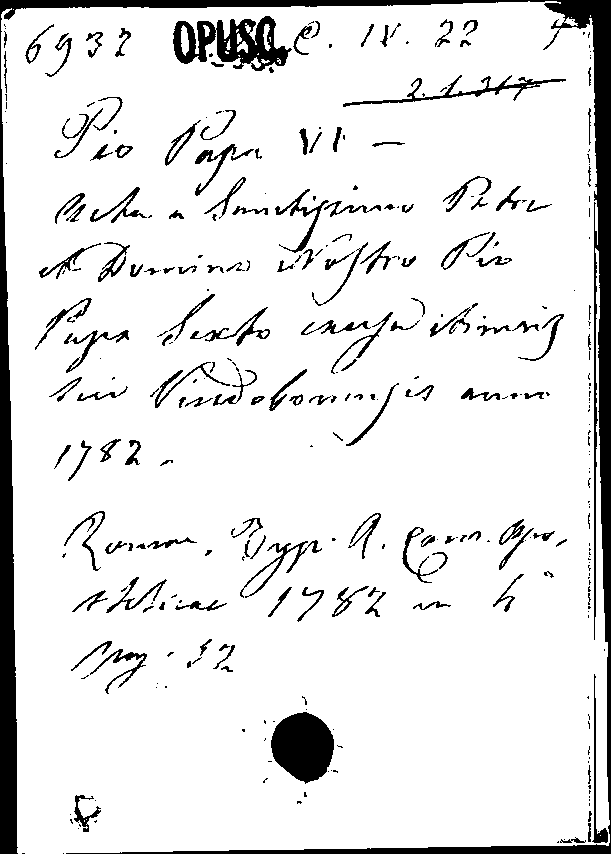 6932 OPUSC. C. IV. 22 4
2. 1. 317
Pio Papa VI —
Acta a Sanctissimo Patre
et Domino Nostro Pio
Papa Sexto causa itineris
sui Vindobonensis anno
1782.
Romae, Typ. R. Cam. Apo-
stolicae 1782 in 4°
pag. 32